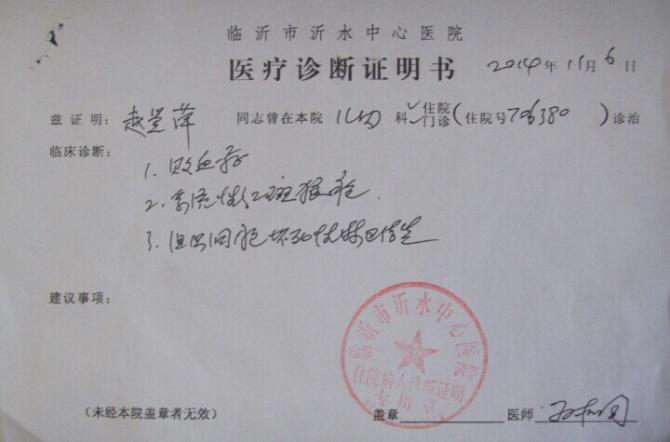 临沂市沂水中心医院
医疗诊断证明书 2014年11月6日
兹证明: 赵 萍 同志曾在本院 儿内 科 ✓住院 门诊 (住院号706380)诊治
临床诊断:
1. 败血症
2. 系统性红斑狼疮
3. 组织细胞坏死性淋巴结炎
建议事项:
临沂市沂水中心医院
住院病人诊断证明
专用章
(未经本院盖章者无效) 盖章 医师